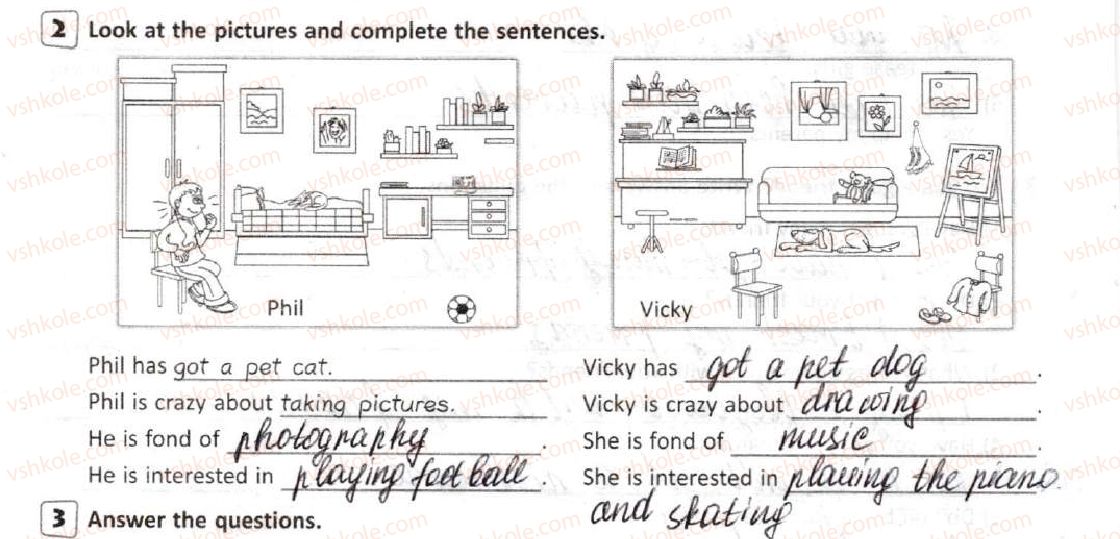 2 Look at the pictures and complete the sentences.
Phil
Vicky
Phil has got a pet cat.
Phil is crazy about taking pictures.
He is fond of photography.
He is interested in playing football.
Vicky has got a pet dog.
Vicky is crazy about drawing.
She is fond of music.
She is interested in plaeing the piano.
and skating
3 Answer the questions.
vshkole.com